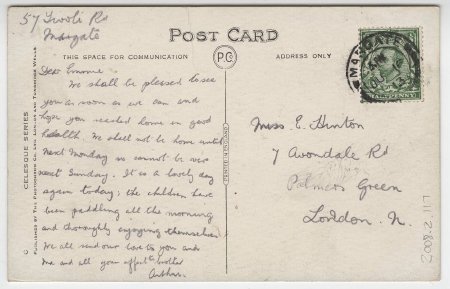 57 Tivoli Rd
Margate
POST CARD
THIS SPACE FOR COMMUNICATION
P.C.
ADDRESS ONLY
MARGATE
Dear Emmie
We shall be pleased to see
you as soon as we can and
hope you reached home in good
health. We shall not be home until
next Monday so cannot be over
next Sunday. It is a lovely day
again today; the children have
been paddling all the morning
and thoroughly enjoying themselves
We all send our love to you and
Ma and all your affect brother
Arthur.
Miss E. Hinton
7 Avondale Rd
Palmers Green
London. N.
CELESQUE SERIES
PUBLISHED BY THE PHOTOCHROM CO. LTD. LONDON AND TUNBRIDGE WELLS
PRINTED IN ENGLAND
2008.2.117